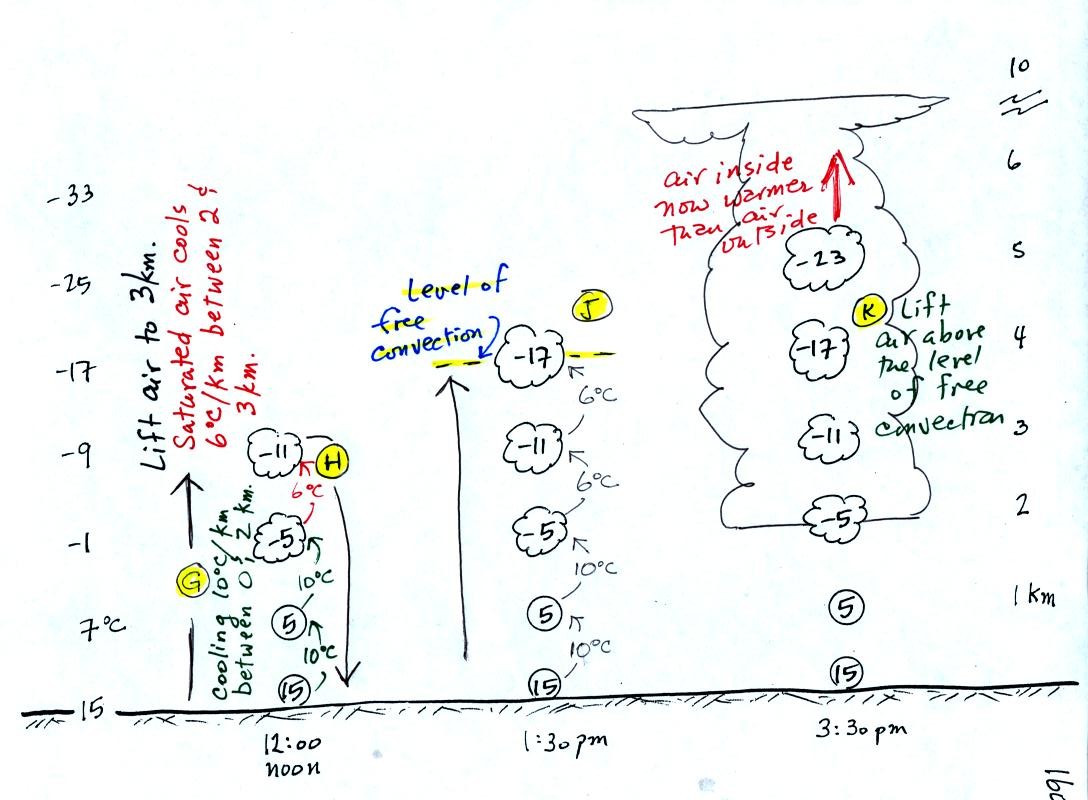 -33
-25
-17
-9
-1
7°C
15
Lift air to 3km.
Saturated air cools
6°C/km between 2 &
3km.
G
cooling 10°C/km
between 0 & 2 km.
-11
H
6°C
-5
10°C
5
10°C
15
12:00
noon
Level of
free
convection
J
-17
6°C
-11
6°C
-5
10°C
5
10°C
15
1:30pm
air inside
now warmer
than air
outside
-23
K
Lift
air above
the level
of free
convection
-17
-11
-5
5
15
3:30pm
10
6
5
4
3
2
1 km